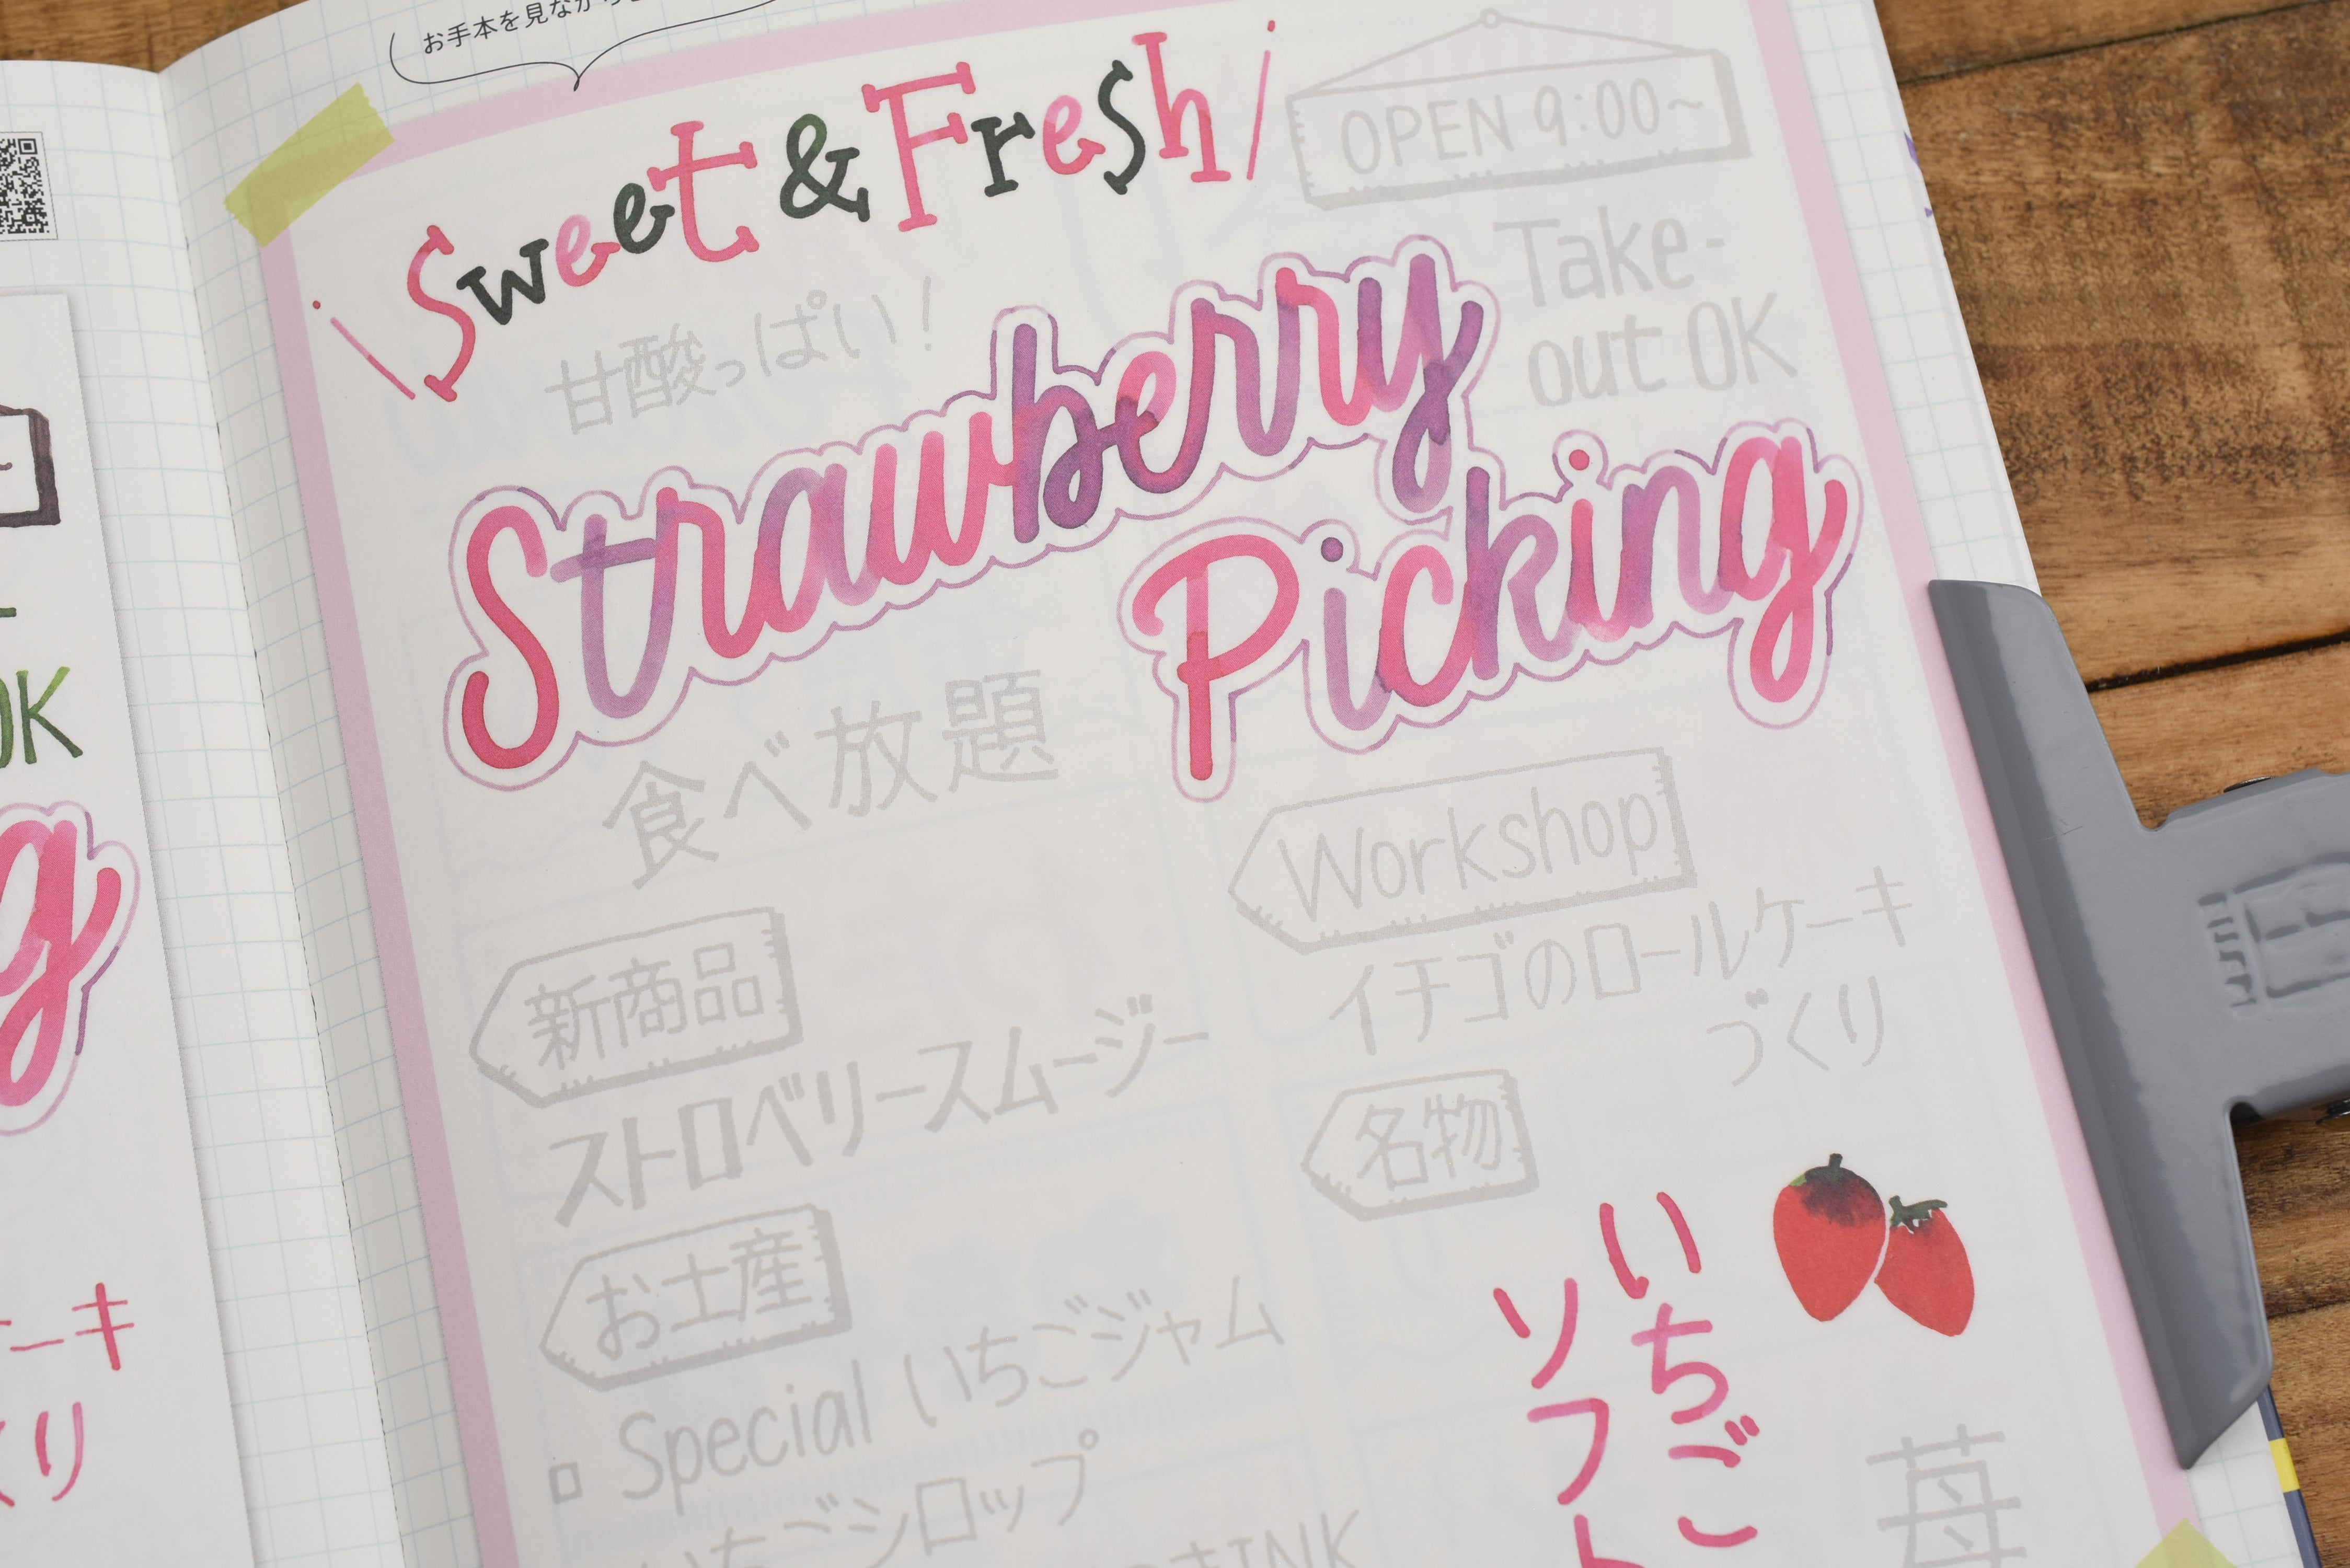 お手本を見ながら
\ Sweet & Fresh /
OPEN 9:00~
甘酸っぱい!
Take-
out OK
Strawberry
Picking
食べ放題
Workshop
イチゴのロールケーキ
づくり
新商品
ストロベリースムージー
名物
お土産
Special いちごジャム
いちごシロップ
いちご
ソフト
苺
INK
OK
ーキ
くり